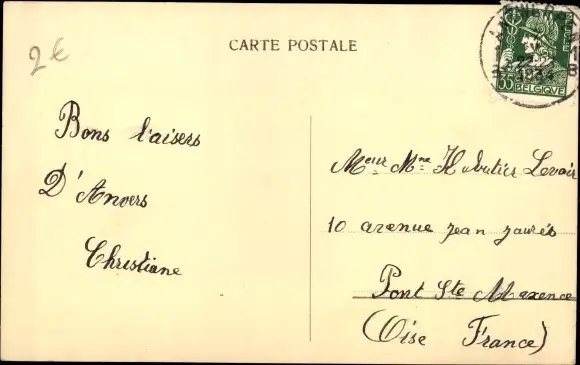 2€
CARTE POSTALE
35
BELGIQUE
1934
Bons baisers
D'Anvers
Christiane
Meur Mme Hubatier Levoir
10 avenue jean jaurés
Pont Ste Maxence
(Oise France)